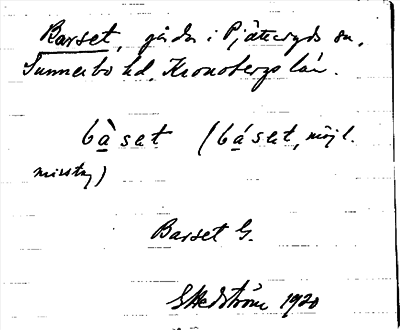 Barset, gårdar i Pjätteryds sn,
Sunnerbo hd, Kronobergs län.
bàset (báset, möjl.
misstag)
Barset G.
S Hedström 1920